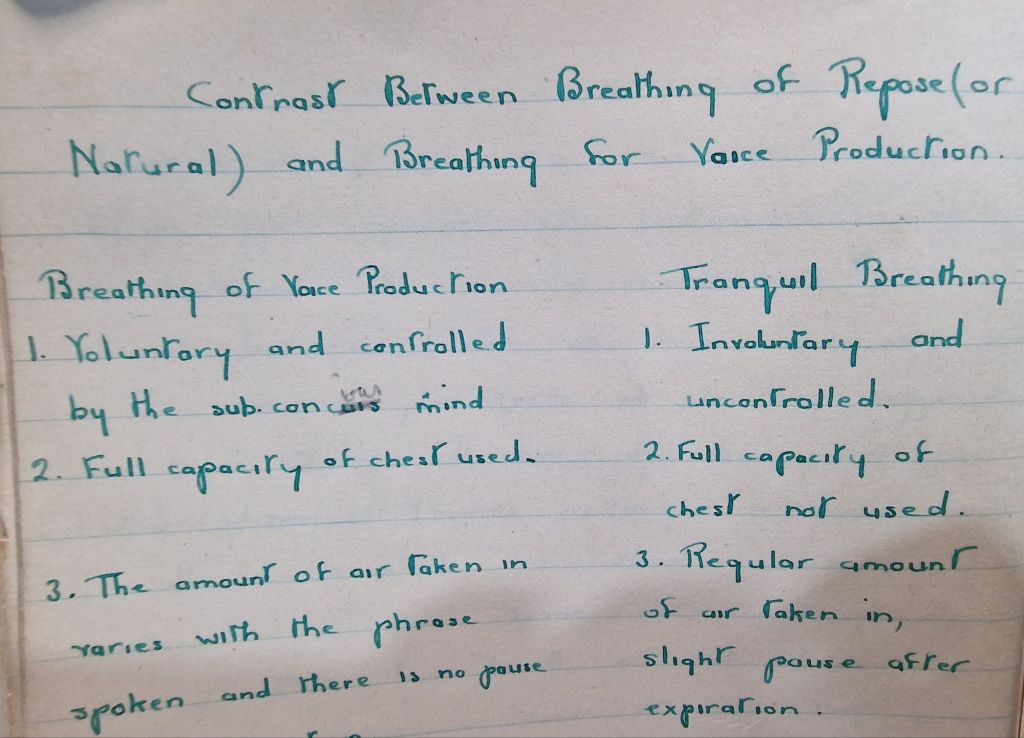 Contrast Between Breathing of Repose (or
Natural) and Breathing for Voice Production.
Breathing of Voice Production
1. Voluntary and controlled
by the sub. concuis mind
2. Full capacity of chest used.
3. The amount of air taken in
varies with the phrase
spoken and there is no pause
Tranquil Breathing
1. Involuntary and
uncontrolled.
2. Full capacity of
chest not used.
3. Regular amount
of air taken in,
slight pause after
expiration.